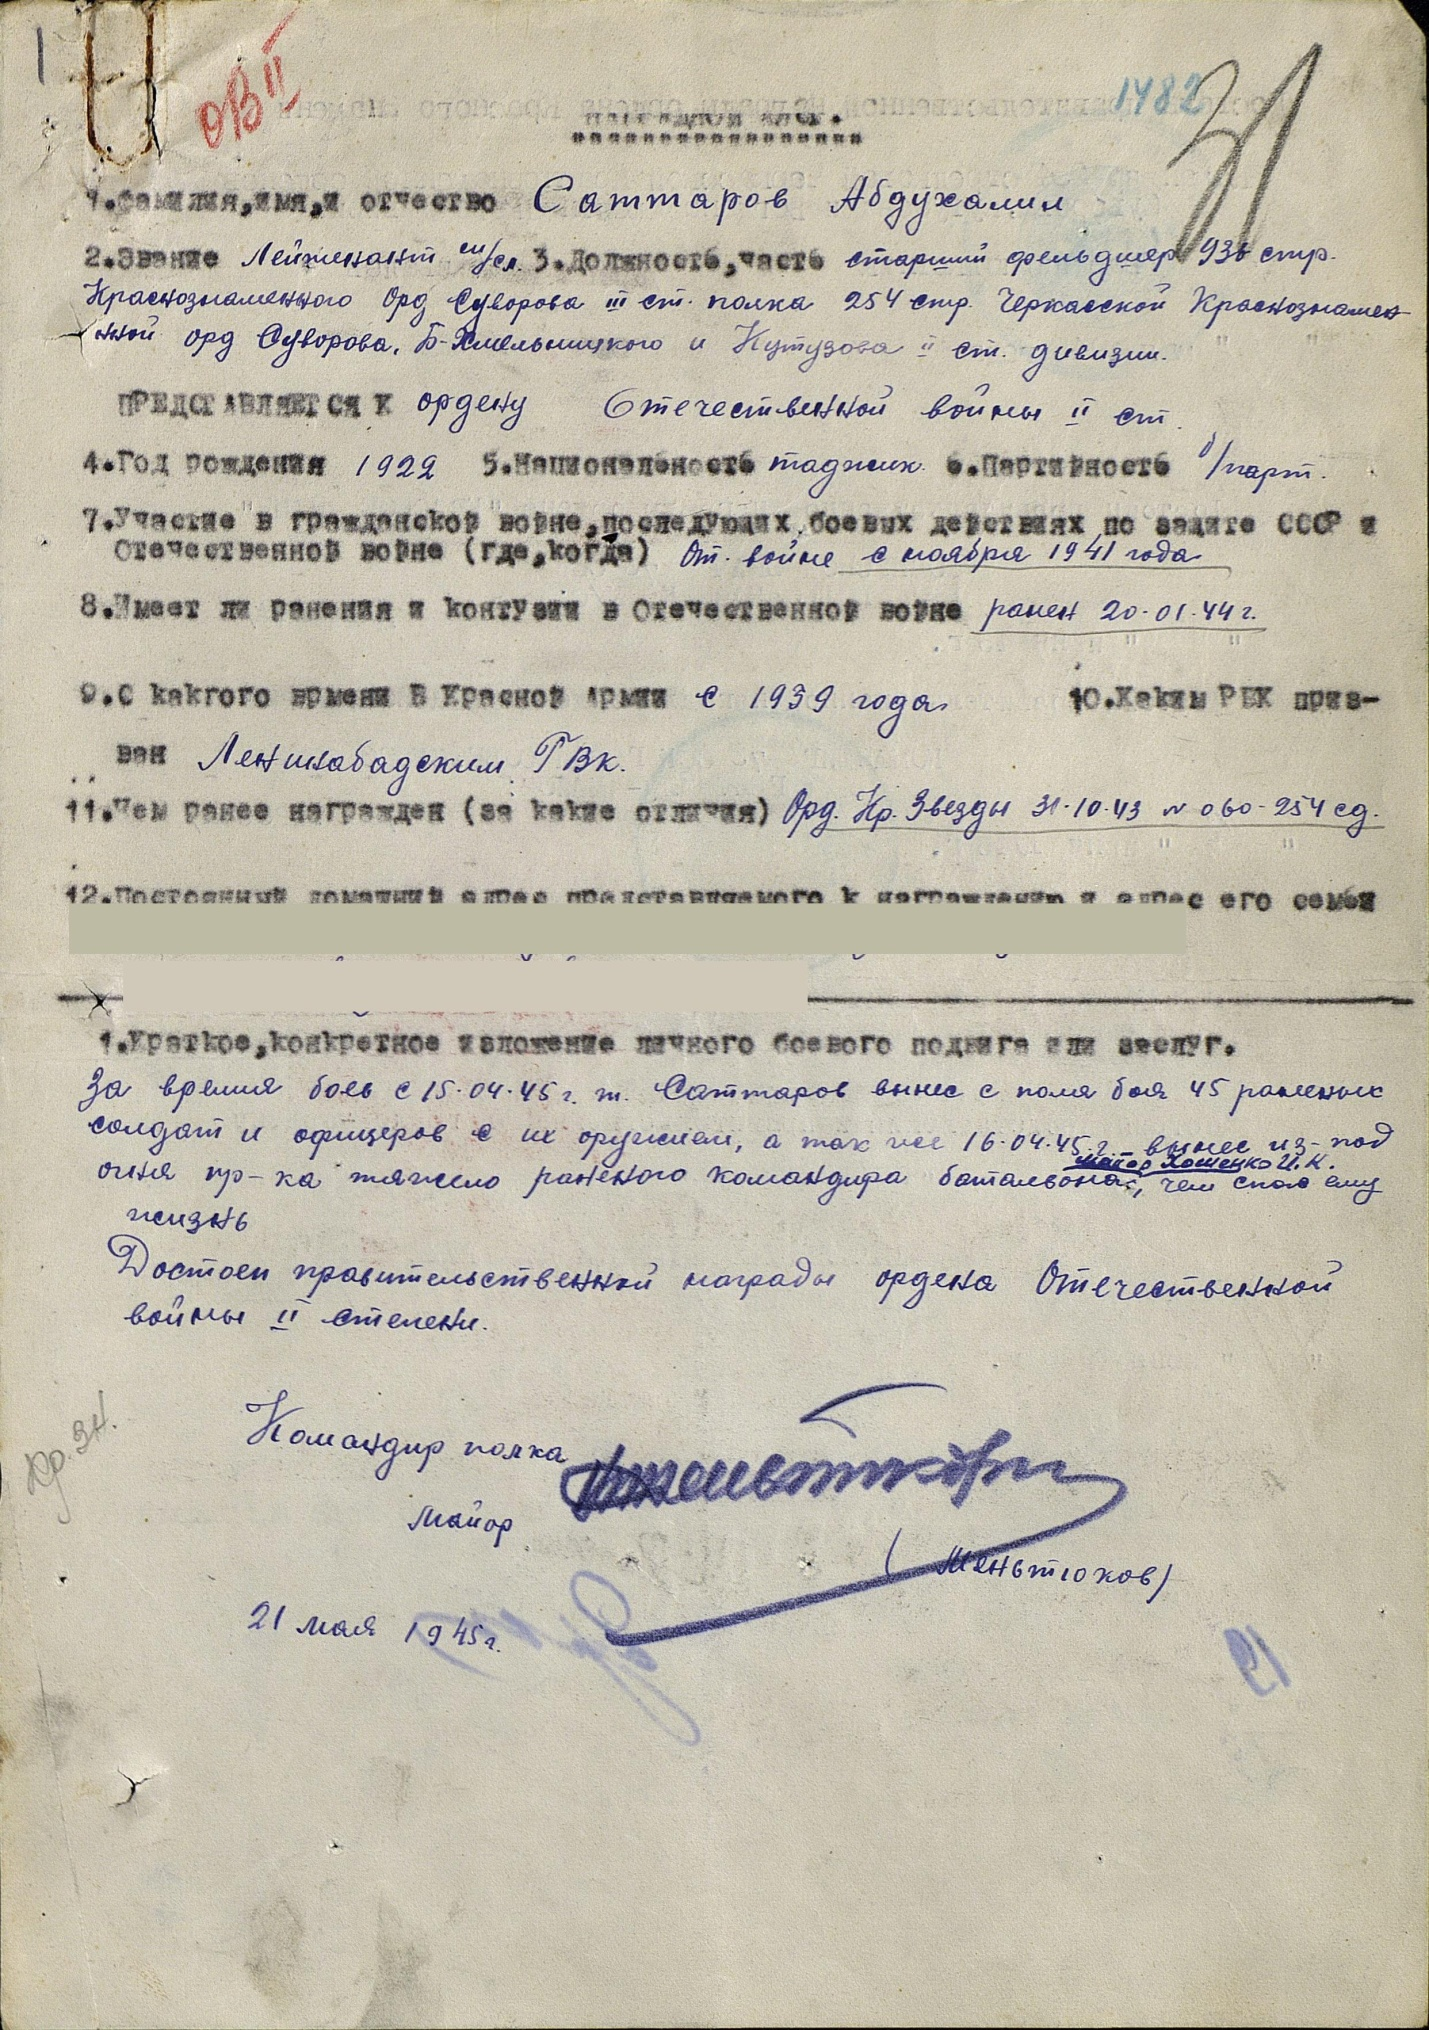 ОВ II
1482
31
Наградной лист.
1.Фамилия,имя,и отчество Саттаров Абдухалил
2.Звание Лейтенант м/сл. 3.Должность,часть старший фельдшер 936 стр.
Краснознаменного Орд Суворова III ст. полка 254 стр. Черкасской Краснознамен-
нной орд Суворова, Б-Хмельницкого и Кутузова II ст. дивизии.
ПРЕДСТАВЛЯЕТСЯ К ордену Отечественной войны II ст.
4.Год рождения 1922 5.Национальность таджик. 6.Партийность б/парт.
7.Участие в гражданской войне,последующих боевых действиях по защите СССР и
Отечественной войне (где,когда) От. войне с ноября 1941 года
8.Имеет ли ранения и контузии в Отечественной войне ранен 20.01.44 г.
9.С какгого врмени В Красной Армии с 1939 года. 10.Каким РВК приз-
ван Ленинабадским ГВк.
11.Чем ранее награжден (за какие отличия) Орд. Кр. Звезды 31.10.43 N 060-254 сд.
12.Постоянный домашний адрес представляемого к награждению и адрес его семьи
1.Краткое,конкретное изложение личного боевого подвига или заслуг.
За время боев с 15.04.45 г. т. Саттаров вынес с поля боя 45 раненых
солдат и офицеров с их оружием, а так же 16.04.45 г. вынес из-под
майор Хоменко И.К.
огня пр-ка тяжело раненого командира батальона, чем спас ему
жизнь
Достоен правительственной награды ордена Отечественной
войны II степени.
Командир полка
Кр. Зн.
майор
(Меньтюков)
21 мая 1945 г.
21